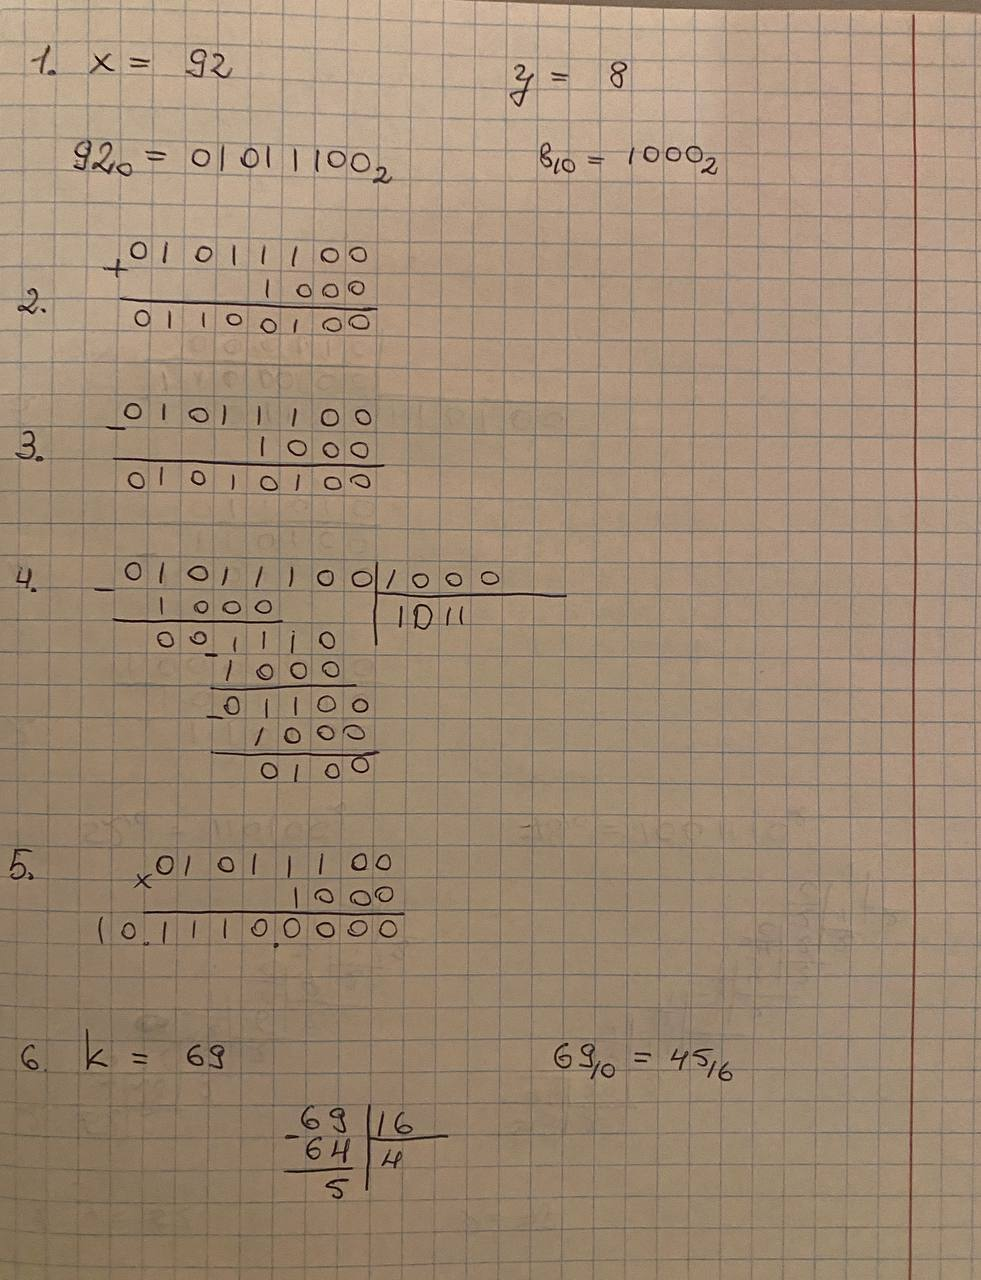 1. x = 92 y = 8
92₀ = 01011100₂ 8₁₀ = 1000₂
+ 01011100
1000
2.
01100100
- 01011100
3. 1000
01010100
4. - 01011100 | 1000
1000 1011
001110
- 1000
- 01100
1000
0100
5. x 01011100
1000
10.1110.0000
6. k = 69 69₁₀ = 45₁₆
- 69 | 16
64 4
5